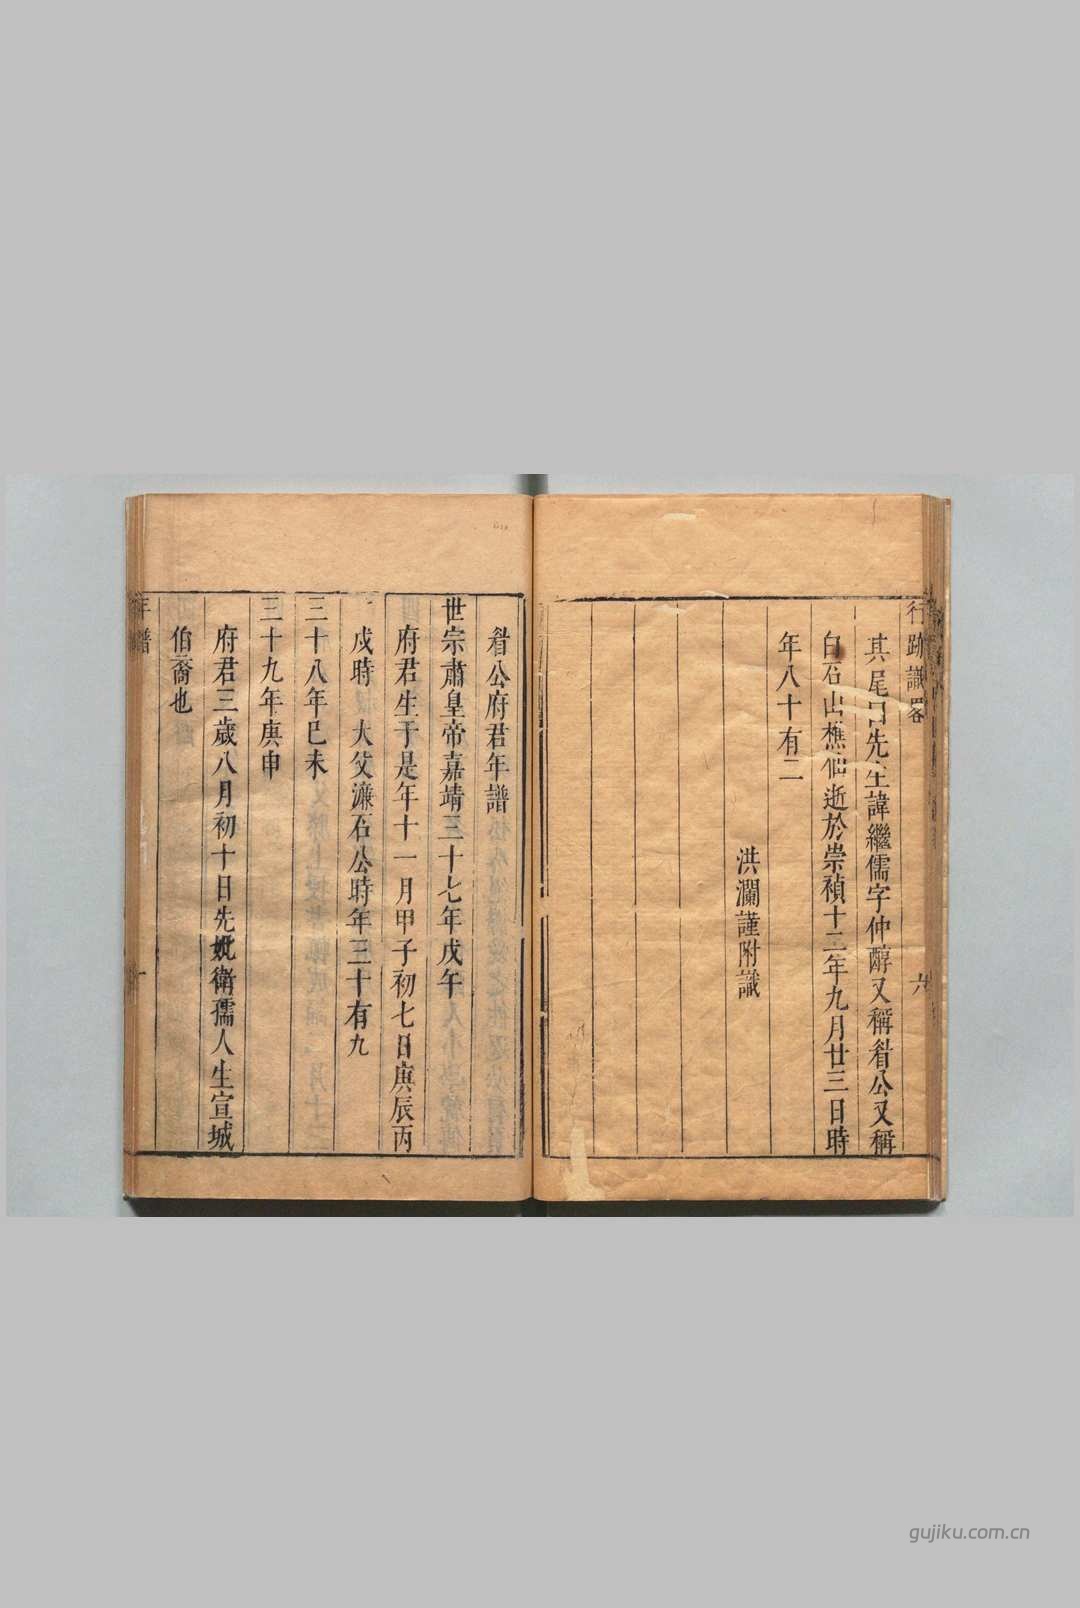 行跡識畧
六
其尾曰先生諱繼儒字仲醇又稱眉公又稱
白石山樵仙逝於崇禎十二年九月廿三日時
年八十有二
洪瀾謹附識
眉公府君年譜
世宗肅皇帝嘉靖三十七年戊午
府君生于是年十一月甲子初七日庚辰丙
戌時 大父濂石公時年三十有九
三十八年巳未
三十九年庚申
府君三歲八月初十日先妣衛孺人生宣城
伯裔也
年譜
一
gujiku.com.cn